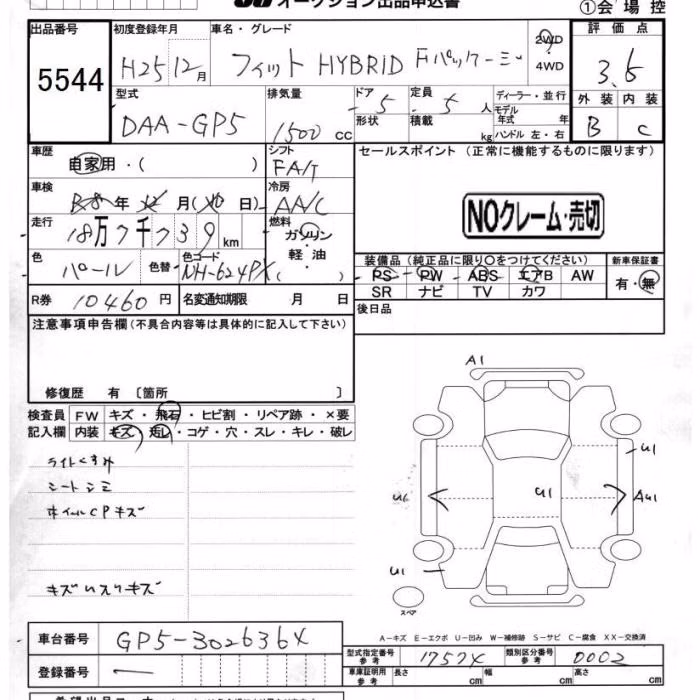 オークション出品申込書 ①会場控
出品番号 初度登録年月 車名・グレード 2WD 評価点
5544 H25 12月 フィット HYBRID Fパッケージ 4WD 3.5
型式 排気量 ドア 定員 ディーラー・並行 外装 内装
DAA-GP5 1500 cc 5 5 人 モデル年式 年 B C
形状 積載 kg ハンドル 左・右
車歴 シフト セールスポイント (正常に機能するものに限ります)
自家用・( ) FA/T
車検 冷房
年 月( 日) AA/C NOクレーム・売切
走行 燃料
18万7千739km ガソリン
色 色替 色コード 軽・油 装備品(純正品に限り○をつけてください) 新車保証書
パール NH-624PX ( ) PS PW ABS エアB AW 有・無
SR ナビ TV カワ
R券 10460円 名変通知期限 月 日 後日品
注意事項申告欄(不具合内容等は具体的に記入して下さい)
修復歴 有 〔箇所 〕
検査員 FW キズ・飛石・ヒビ割・リペア跡・×要
記入欄 内装 キズ・汚レ・コゲ・穴・スレ・キレ・破レ
ライトくすみ
シートシミ
ホイルCPキズ
キズ いスリキズ
A1
U1
U1
AU1
U1
スペア
A−キズ E−エクボ U−凹み W−補修跡 S−サビ C−腐食 XX−交換済
車台番号 GP5-302636X
型式指定番号 参考 17574 類別区分番号 参考 0002
登録番号 車庫証明用 参考 長さ cm 幅 cm 高さ cm